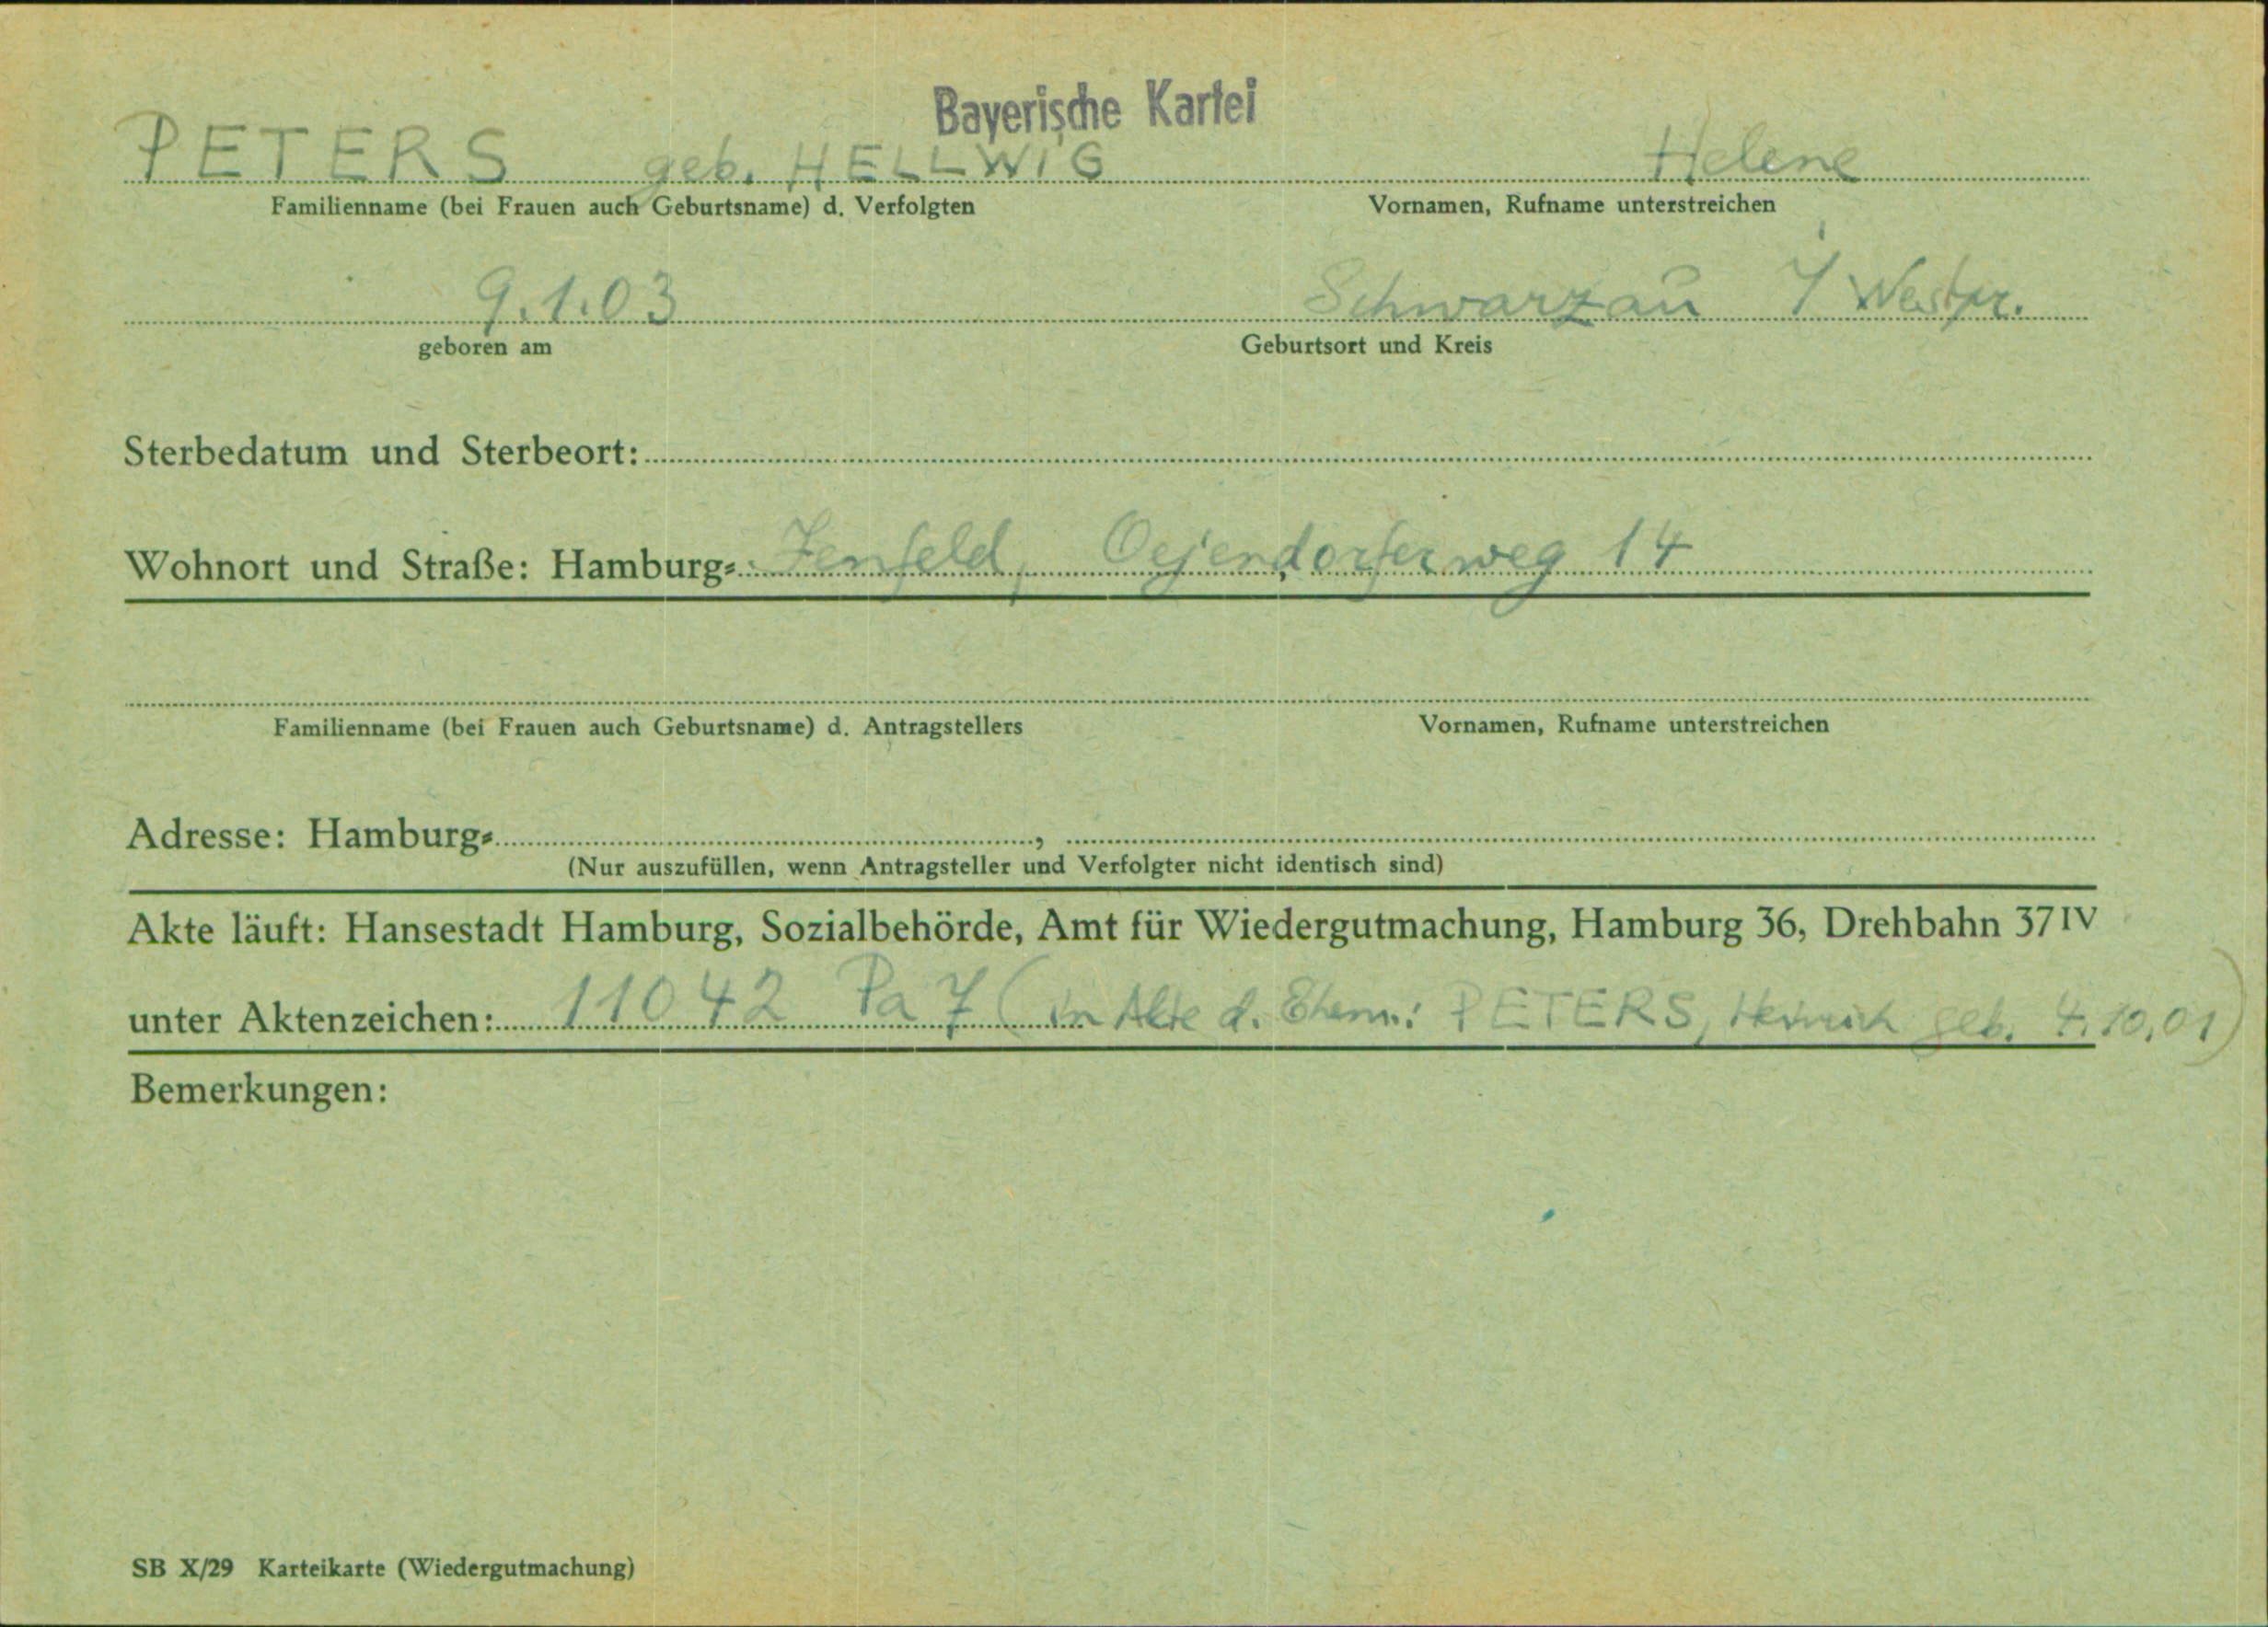 Bayerische Kartei
PETERS geb. HELLWIG Helene
Familienname (bei Frauen auch Geburtsname) d. Verfolgten Vornamen, Rufname unterstreichen
9.1.03 Schwarzau / Westpr.
geboren am Geburtsort und Kreis
Sterbedatum und Sterbeort:
Wohnort und Straße: Hamburg- Jenfeld, Oejendorferweg 14
Familienname (bei Frauen auch Geburtsname) d. Antragstellers Vornamen, Rufname unterstreichen
Adresse: Hamburg- ,
(Nur auszufüllen, wenn Antragsteller und Verfolgter nicht identisch sind)
Akte läuft: Hansestadt Hamburg, Sozialbehörde, Amt für Wiedergutmachung, Hamburg 36, Drehbahn 37 IV
unter Aktenzeichen: 11042 Pa 7 (in Akte d. Ehem.: PETERS, Heinrich geb. 4.10.01)
Bemerkungen:
SB X/29 Karteikarte (Wiedergutmachung)